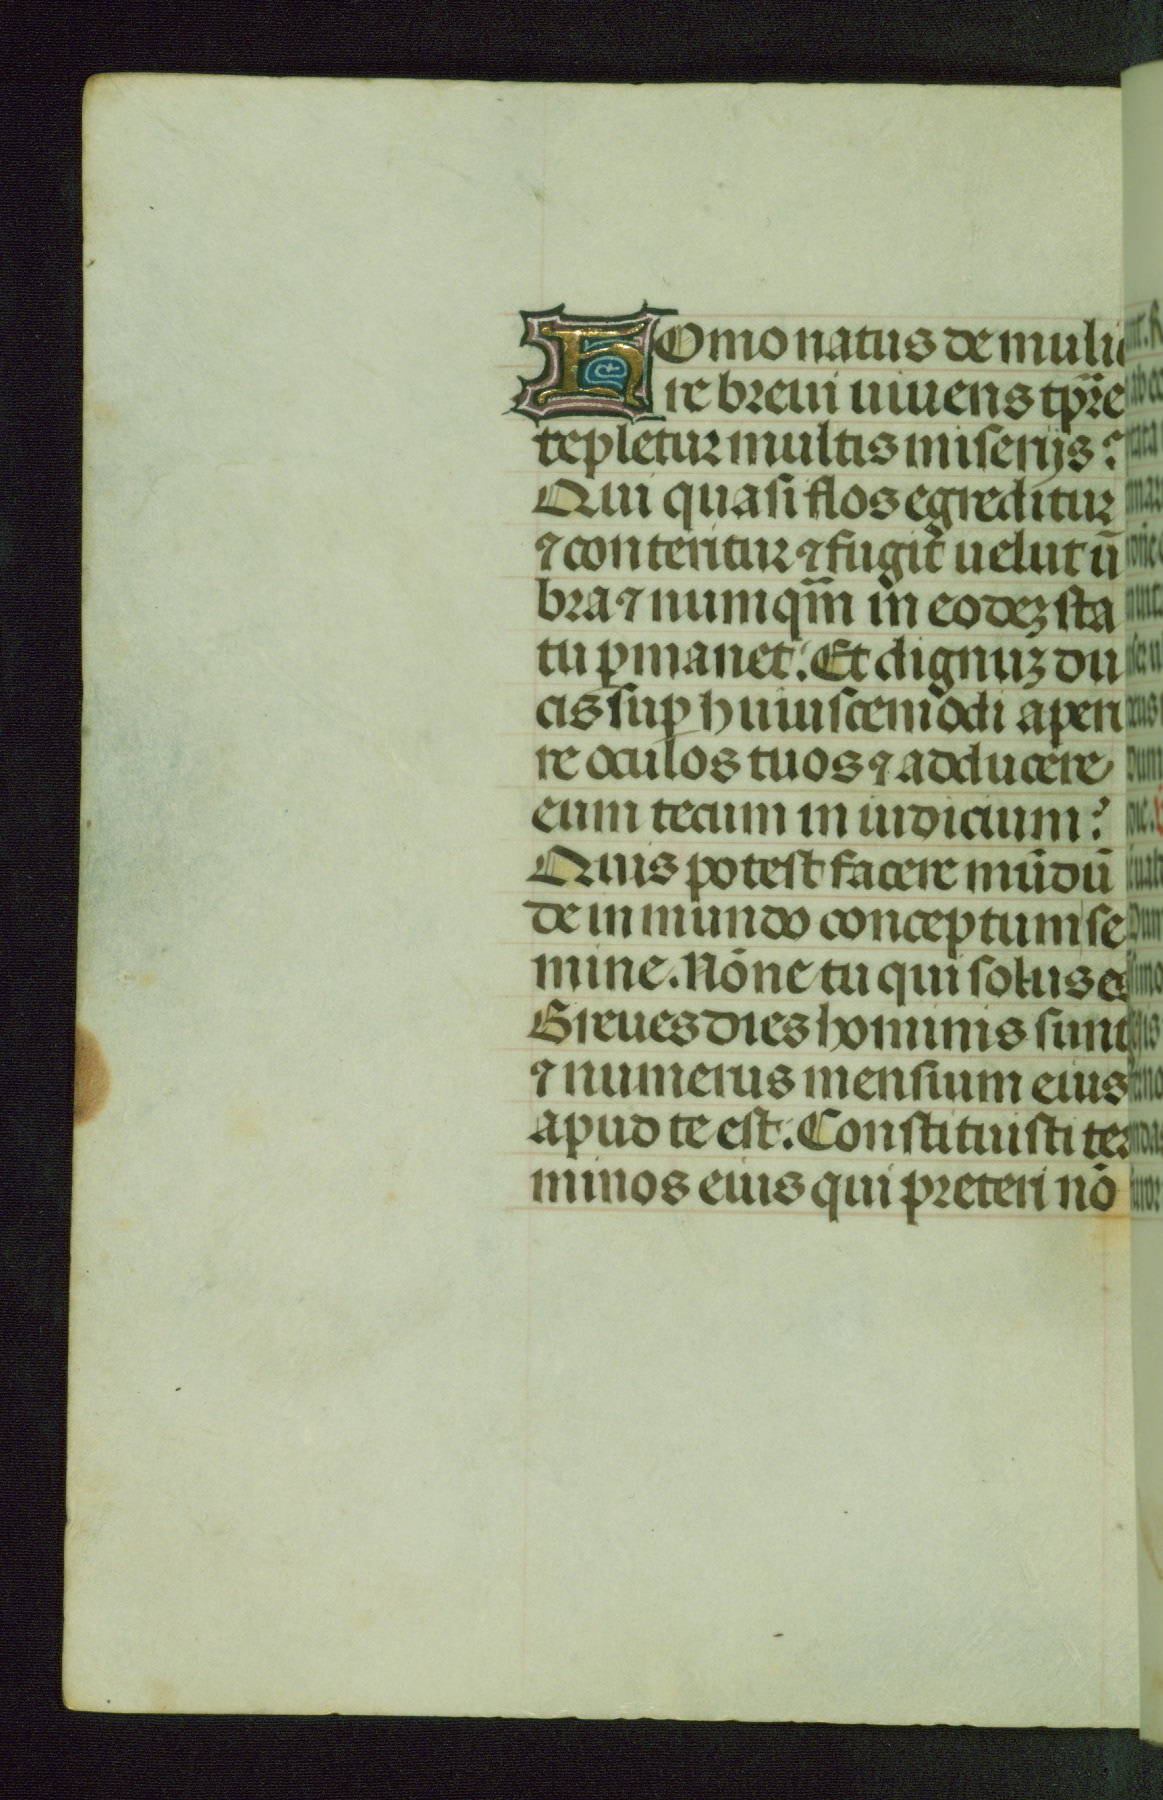 HOmo natus de mulie
re breui uiuens tp̄re
repletur multis miserijs?
Qui quasi flos egreditur
⁊ conteritur ⁊ fugit uelut ū
bra ⁊ numqm̄ in eodeꝫ sta
tu ꝑmanet. Et dignuꝫ du
cis suꝑ huiuscemodi aperi
re oculos tuos ⁊ adducere
eum tecum in iudicium?
Quis potest facere mūdū
de inmundo conceptum se
mine. Nōne tu qui solus es
Breues dies hominis sunt
⁊ numerus mensium eius
apud te est. Constituisti ter
minos eius qui preteri nō